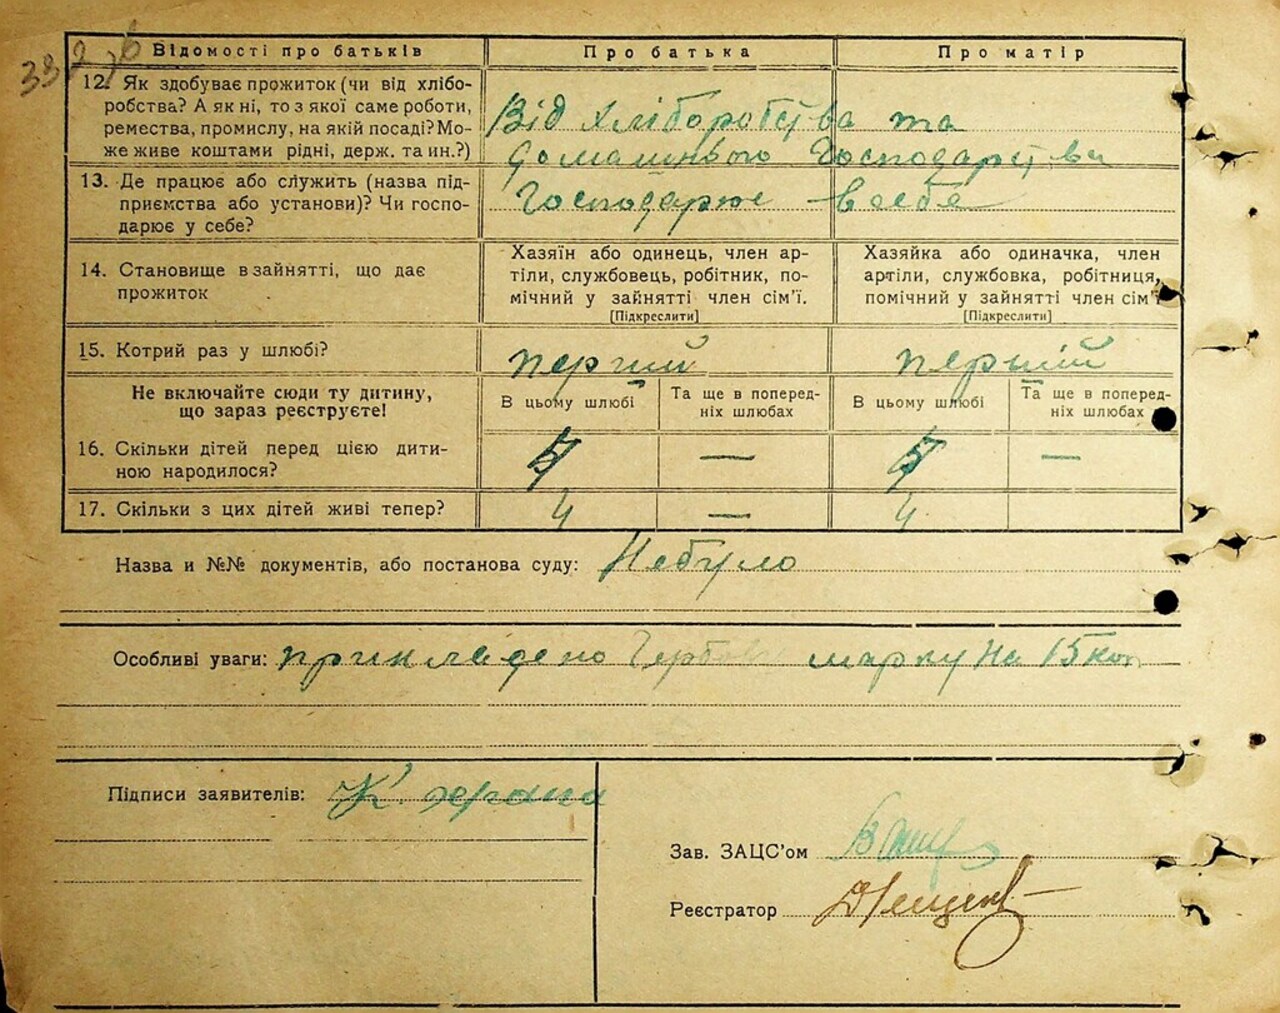 Відомості про батьків Про батька Про матір
12. Як здобуває прожиток (чи від хлібо-
робства? А як ні, то з якої саме роботи,
ремества, промислу, на якій посаді? Мо-
же живе коштами рідні, держ. та ин.?)
Від хліборобства та
домашнього господарства
13. Де працює або служить (назва під-
приємства або установи)? Чи госпо-
дарює у себе?
Господарює в себе
14. Становище в зайнятті, що дає
прожиток
Хазяїн або одинець, член ар-
тіли, службовець, робітник, по-
мічний у зайнятті член сім'ї.
[Підкреслити]
Хазяйка або одиначка, член
артіли, службовка, робітниця,
помічний у зайнятті член сім'ї
[Підкреслити]
15. Котрий раз у шлюбі? перший перший
Не включайте сюди ту дитину,
що зараз реєструєте!
В цьому шлюбі
Та ще в поперед-
ніх шлюбах
В цьому шлюбі
Та ще в поперед-
ніх шлюбах
16. Скільки дітей перед цією дити-
ною народилося?
5 — 5 —
17. Скільки з цих дітей живі тепер? 4 — 4
Назва и №№ документів, або постанова суду: Небуло
Особливі уваги: прикладено Гербову марку на 15 коп
Підписи заявителів:
Зав. ЗАЦС'ом
Реєстратор